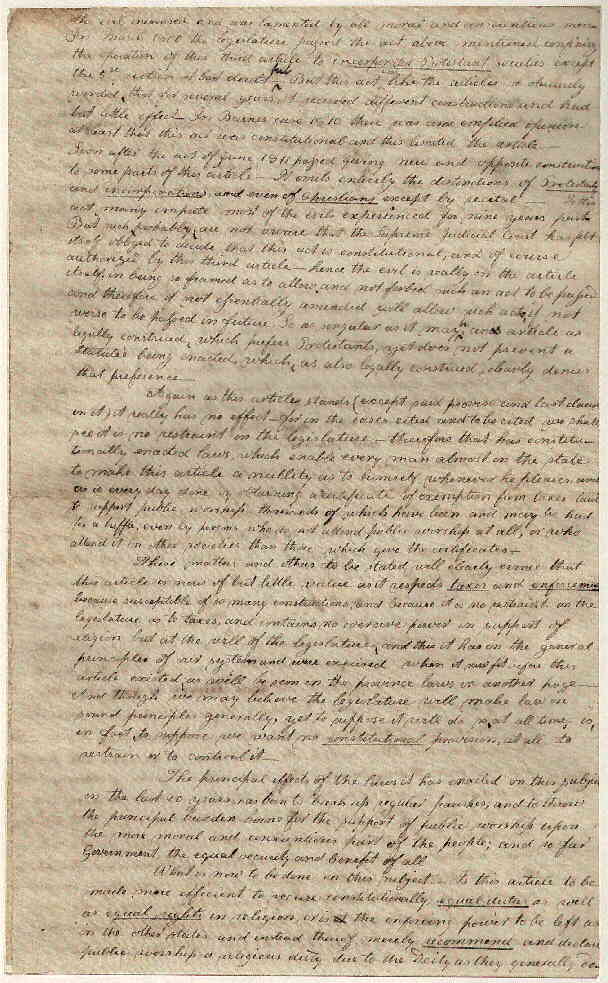 the evil increased and was lamented by all moral and conscientious men
In March 1800 the legislature passed the act above mentioned confining
the operation of this third article to incorporated Protestant societies except
the 5th section it had dealt But this act like the articles is obscurely
worded, that for several years, it received different constructions and had
but little effect In Barnes case 1810 there was an implied opinion
at least that this act was constitutional and this limited the article —
Soon after the act of June 1811 passed giving new and opposite constructions
to some parts of this article — It omits entirely the distinctions of Protestants
and incorporations and even of Christians except by recital — To this
act many impute most of the evils experienced for nine years past
But such probably are not aware that the Supreme Judicial Court has felt
itself obliged to decide that this act is constitutional, and of course
authorized by this third article — hence the evil is really in the article
itself, in being so framed as to allow, and not forbid such an act to be passed
and therefore if not essentially amended will allow such acts, if not
worse to be passed in future. So as singular as it may an article as
legally construed, which prefers Protestants, yet does not prevent a
statute's being enacted, which, as also legally construed, clearly denies
that preference —
Again as this article stands (except said proviso and last clause
in it) it really has no effect — for in the cases cited and to be cited we shall
see it is no restraint on the legislature — therefore that has constitu-
tionally enacted laws, which enable every man almost in the state
to make this article a nullity as to himself whenever he pleases, and
as is every day done by obtaining a certificate of exemption from taxes laid
to support public worship hundreds of which have been and may be had
for a trifle, even by persons who do not attend public worship at all, or who
attend it in other societies than those which give the certificates —
These matters and others to be stated will clearly evince that
this article is now of but little value as it respects taxes and enforcement
because susceptible of so many constructions, and because it is no restraint on the
legislature as to taxes, and contains no coercive power in support of
religion but at the will of the legislature, and this it has on the general
principles of our system and were exercised when it was fit before this
article existed as will be seen in the province laws in another page —
And though we may believe the legislature will make laws on
sound principles generally, yet to suppose it will do so, at all times, is,
in fact, to suppose we want no constitutional provision, at all to
restrain or to control it —
The principal effect of the laws it has enacted on this subject
in the last 20 years has been to break up regular parishes, and to throw
the principal burden for the support of public worship upon
the more moral and conscientious part of the people; and so far
Government, the equal security and benefit of all
What is now to be done on this subject. Is this article to be
made more efficient to secure constitutionally equal duties as well
as equal rights in religion, or is the enforcing power to be left as
in the other states and instead thereof merely recommend and declare
public worship a religious duty due to the Deity as they generally do